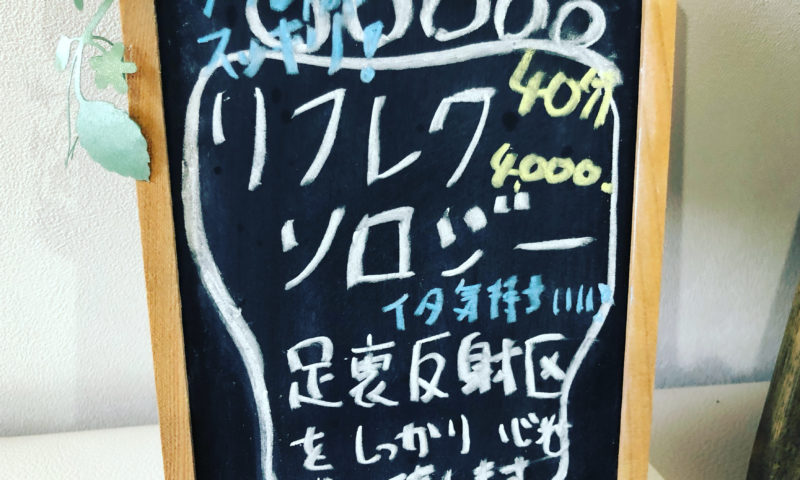 スッキリ!
リフレク
40分
4,000.
ソロジー
イタ気持ちいいい
足裏反射区
をしっかり 心も